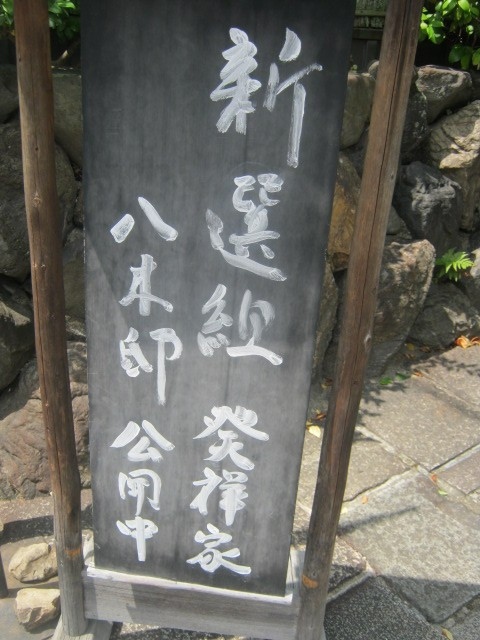 新選組 発祥家
八木邸 公開中